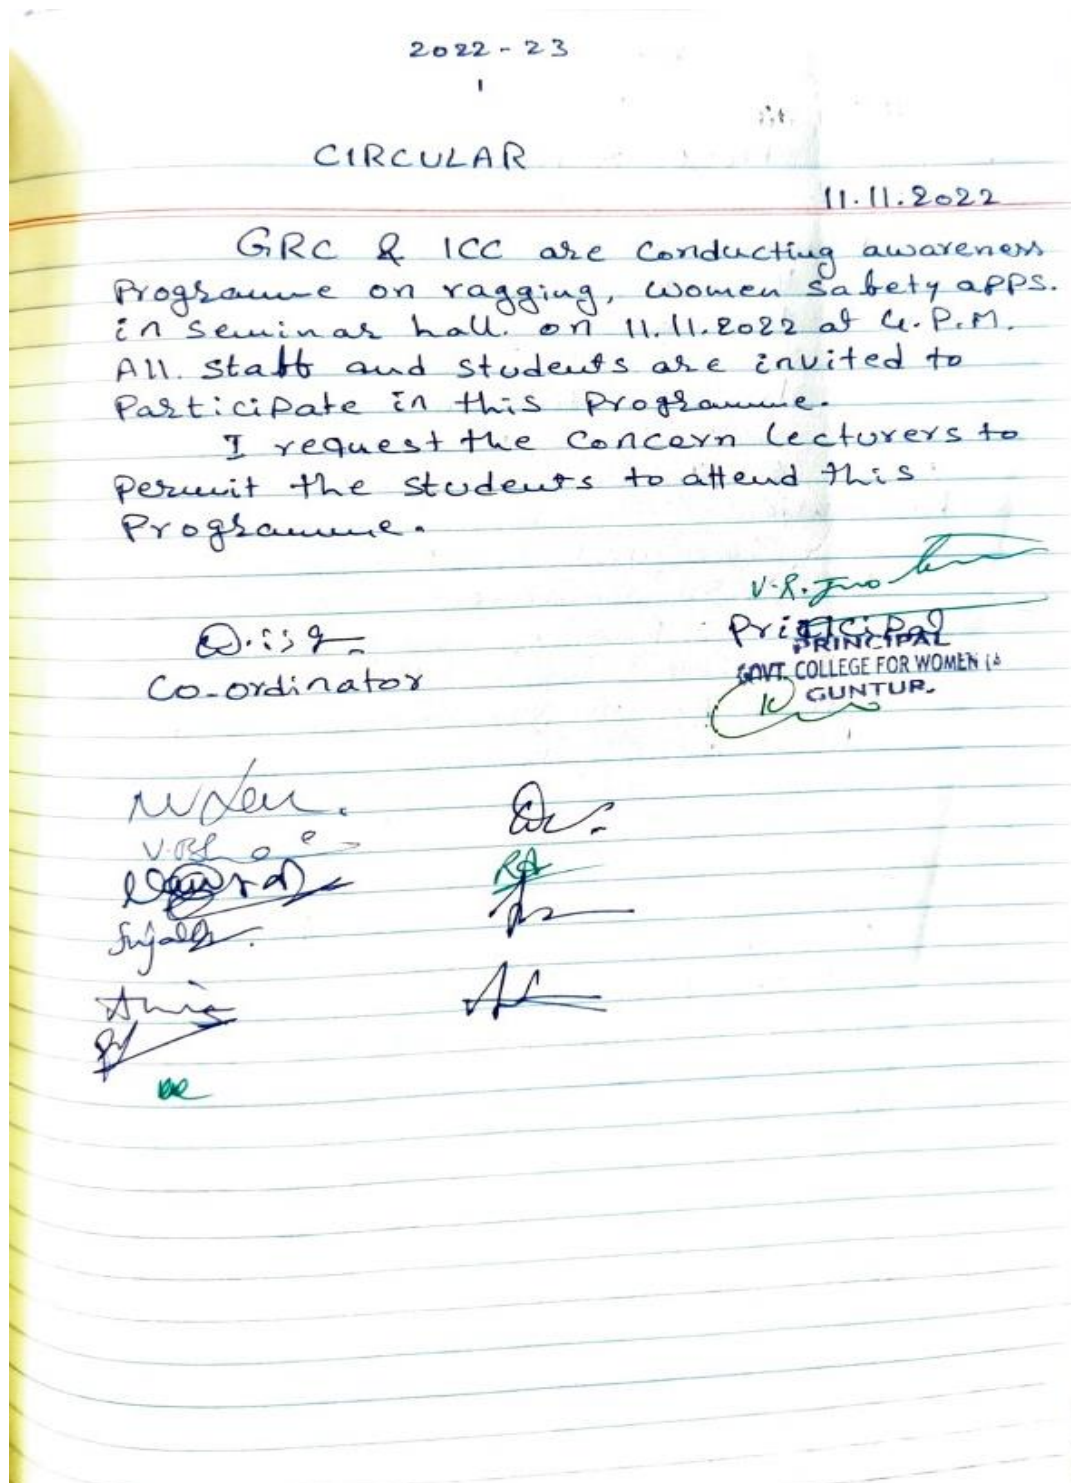 2022-23
1
CIRCULAR
11.11.2022
GRC & ICC are conducting awareness
Programme on ragging, women safety apps.
in seminar hall. on 11.11.2022 at 4.P.M.
All. staff and students are invited to
Participate in this Programme.
I request the concern lecturers to
Permit the students to attend this
Programme.
V.R.
Principal
PRINCIPAL
GOVT. COLLEGE FOR WOMEN
GUNTUR.
Co-ordinator